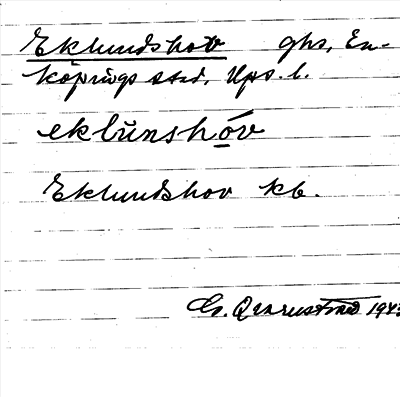 Eklundshov ghs, En-
köpings stad, Ups. l.
eklŭnshóv
Eklundshov kb.
G. Qvarnström 194